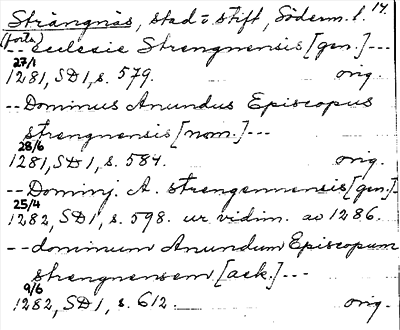 Strängnäs, stad o stift, Söderm. l. 14.
(forts)
-- ecclesie Strengnensis [gen.] ---
27/1
1281, SD1, s. 579. orig.
-- Dominus Anundus Episcopus
strengnensis [nom.] ---
28/6
1281, SD1, s. 584. orig.
-- Dominj. A. strengennensis [gen.] -
25/4
1282, SD1, s. 598. ur vidim. av 1286.
-- dominum Anundum Episcopum
strengnensem [ack.] ---
9/6
1282, SD1, s. 612. orig.